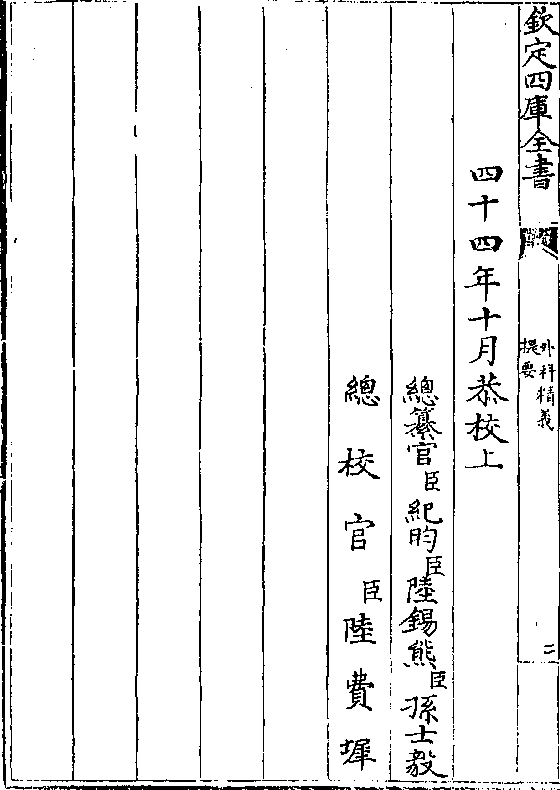 欽定四庫全書
外科精義
提要
二
四十四年十月恭校上
總纂官臣紀昀臣陸錫熊臣孫士毅
總校官臣陸費墀